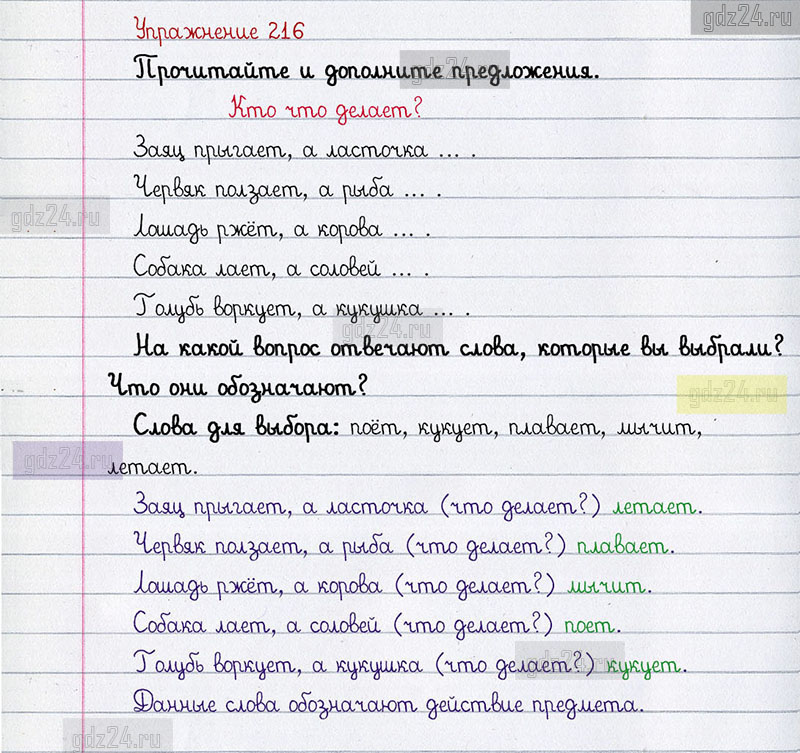 gdz24.ru
Упражнение 216
Прочитайте и дополните предложения.
gdz24.ru
Кто что делает?
Заяц прыгает, а ласточка ... .
Червяк ползает, а рыба ... .
gdz24.ru
Лошадь ржёт, а корова ... .
Собака лает, а соловей ... .
Голубь воркует, а кукушка ... .
gdz24.ru
На какой вопрос отвечают слова, которые вы выбрали?
Что они обозначают?
gdz24.ru
Слова для выбора: поёт, кукует, плавает, мычит,
gdz24.ru
летает.
Заяц прыгает, а ласточка (что делает?) летает.
Червяк ползает, а рыба (что делает?) плавает.
Лошадь ржёт, а корова (что делает?) мычит.
Собака лает, а соловей (что делает?) поет.
Голубь воркует, а кукушка (что делает?) кукует.
gdz24.ru
Данные слова обозначают действие предмета.
gdz24.ru